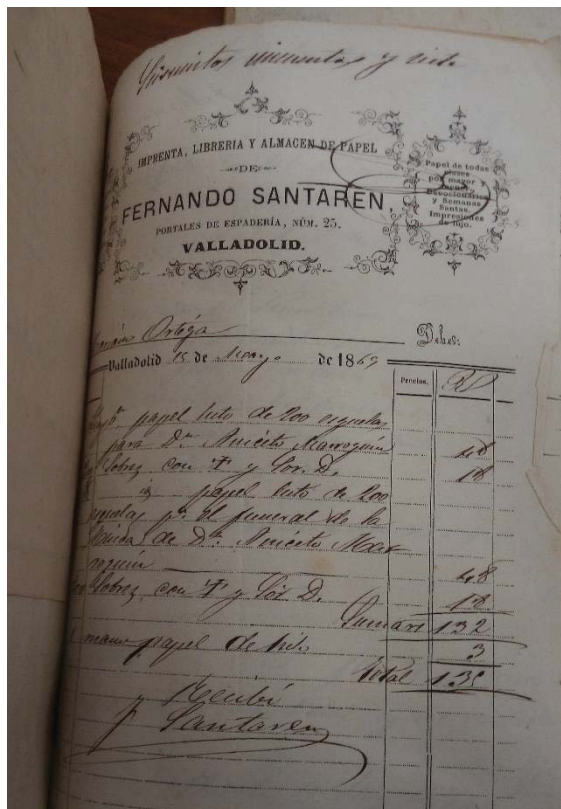 Doscientos cincuenta y siete
IMPRENTA, LIBRERIA Y ALMACEN DE PAPEL
DE
FERNANDO SANTAREN,
PORTALES DE ESPADERÍA, NÚM. 25.
VALLADOLID.
Papel de todas
clases
por mayor
Devocionarios
y Semanas
Santas.
Impresiones
de lujo.
Ortega
Debe:
Valladolid 15 de Mayo de 1869
Precios.
papel luto de 200 esquelas
para Dn Aniceto Marroquin 48
Sobres con † y Sor. D. 18
id papel luto de 200
esquelas pa el funeral de la
de Dn Aniceto Mar
roquin 48
Sobres con † y Sor D. 18
Suman 132
mano papel de hilo 3
total 135
Recibi
F Santaren